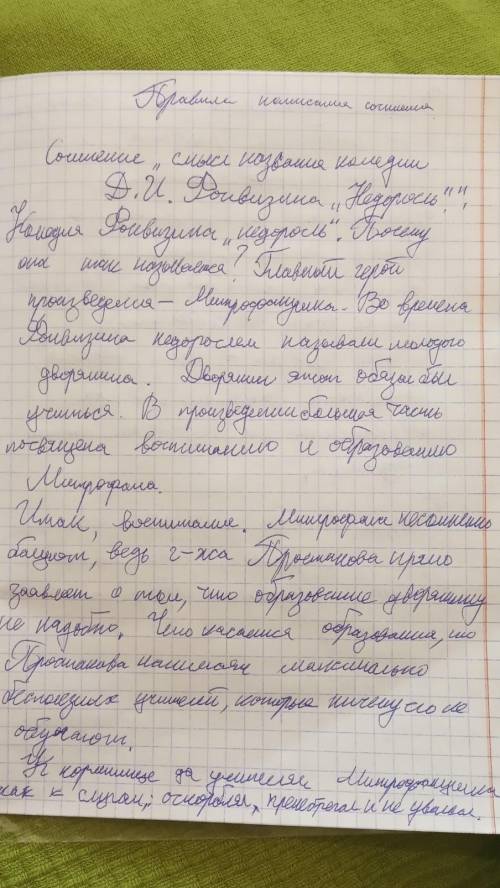 Правила написания сочинения
Сочинение „смысл названия комедии
Д.И. Фонвизина „Недоросль"".
Комедия Фонвизина „недоросль". Почему
она так называется? Главный герой
произведения – Митрофанушка. Во времена
Фонвизина недорослем называли молодого
дворянина. Дворянин этот обязан был
учиться. В произведении большая часть
посвящена воспитанию и образованию
Митрофана.
Итак, воспитание. Митрофана несомненно
балуют, ведь г-жа Простакова прямо
заявляет о том, что образование дворянину
не надобно. Что касается образования, то
Простакова нанимает максимально
бесполезных учителей, которые ничему его не
обучают.
К кормилице да учителям Митрофанушка
как к слугам; оскорблял, пренебрегал и не уважал.